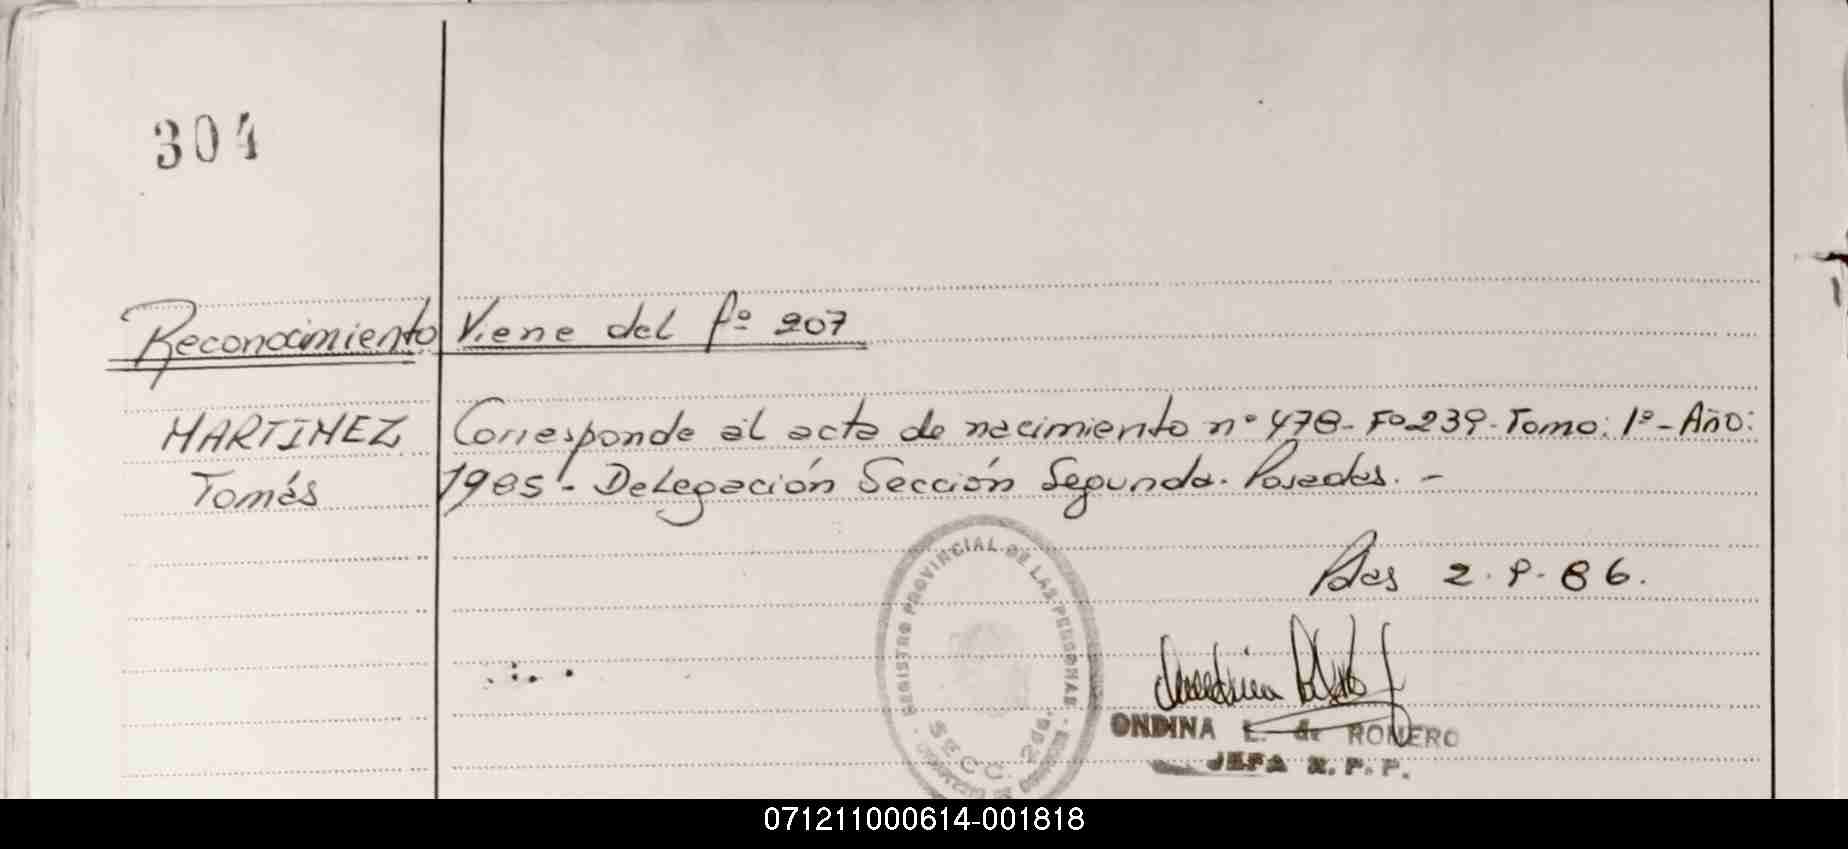 304
Reconocimiento Viene del fº 207
MARTINEZ Corresponde al acta de nacimiento nº 478- Fº239- Tomo: 1º- Año:
Tomás 1985- Delegación Sección Segunda. Posadas. -
Pdas 2.9.86.
REGISTRO PROVINCIAL DE LAS PERSONAS
SECC. 2da.
ONDINA L. de ROMERO
JEFA R.P.P.
071211000614-001818